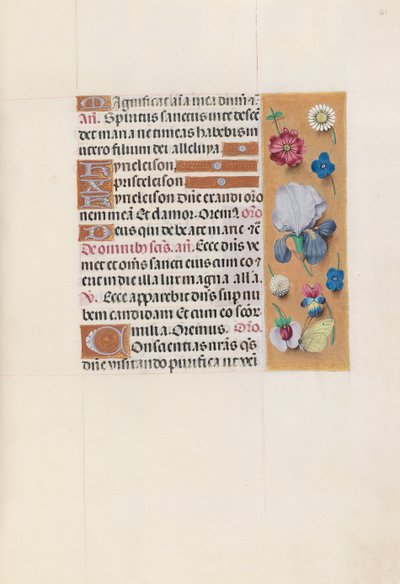 Magnificat aīa mea dn̄m ⁊c̄
Añ. Spiritus sanctus in te descē
det maria ne timeas habebis in
utero filium dei alleluya.
Kyrieleison
Xpristeleison
Kyrieleison Dn̄e exaudi or̄o
nem meā Et clamor. Orem⁹ or̄o
Deus qui de beate marie ⁊c̄
De omnibꝰ sc̄is. añ. Ecce dn̄s ve
niet et om̄s sancti eius cum eo ⁊
erit in die illa lux magna all̄a
℣. Ecce apparebit dn̄s sup nu
bem candidam Et cum eo sc̄or̄
milia. Oremus. Or̄o.
Conscientias n̄ras q̄s
dn̄e visitando purifica ut vei